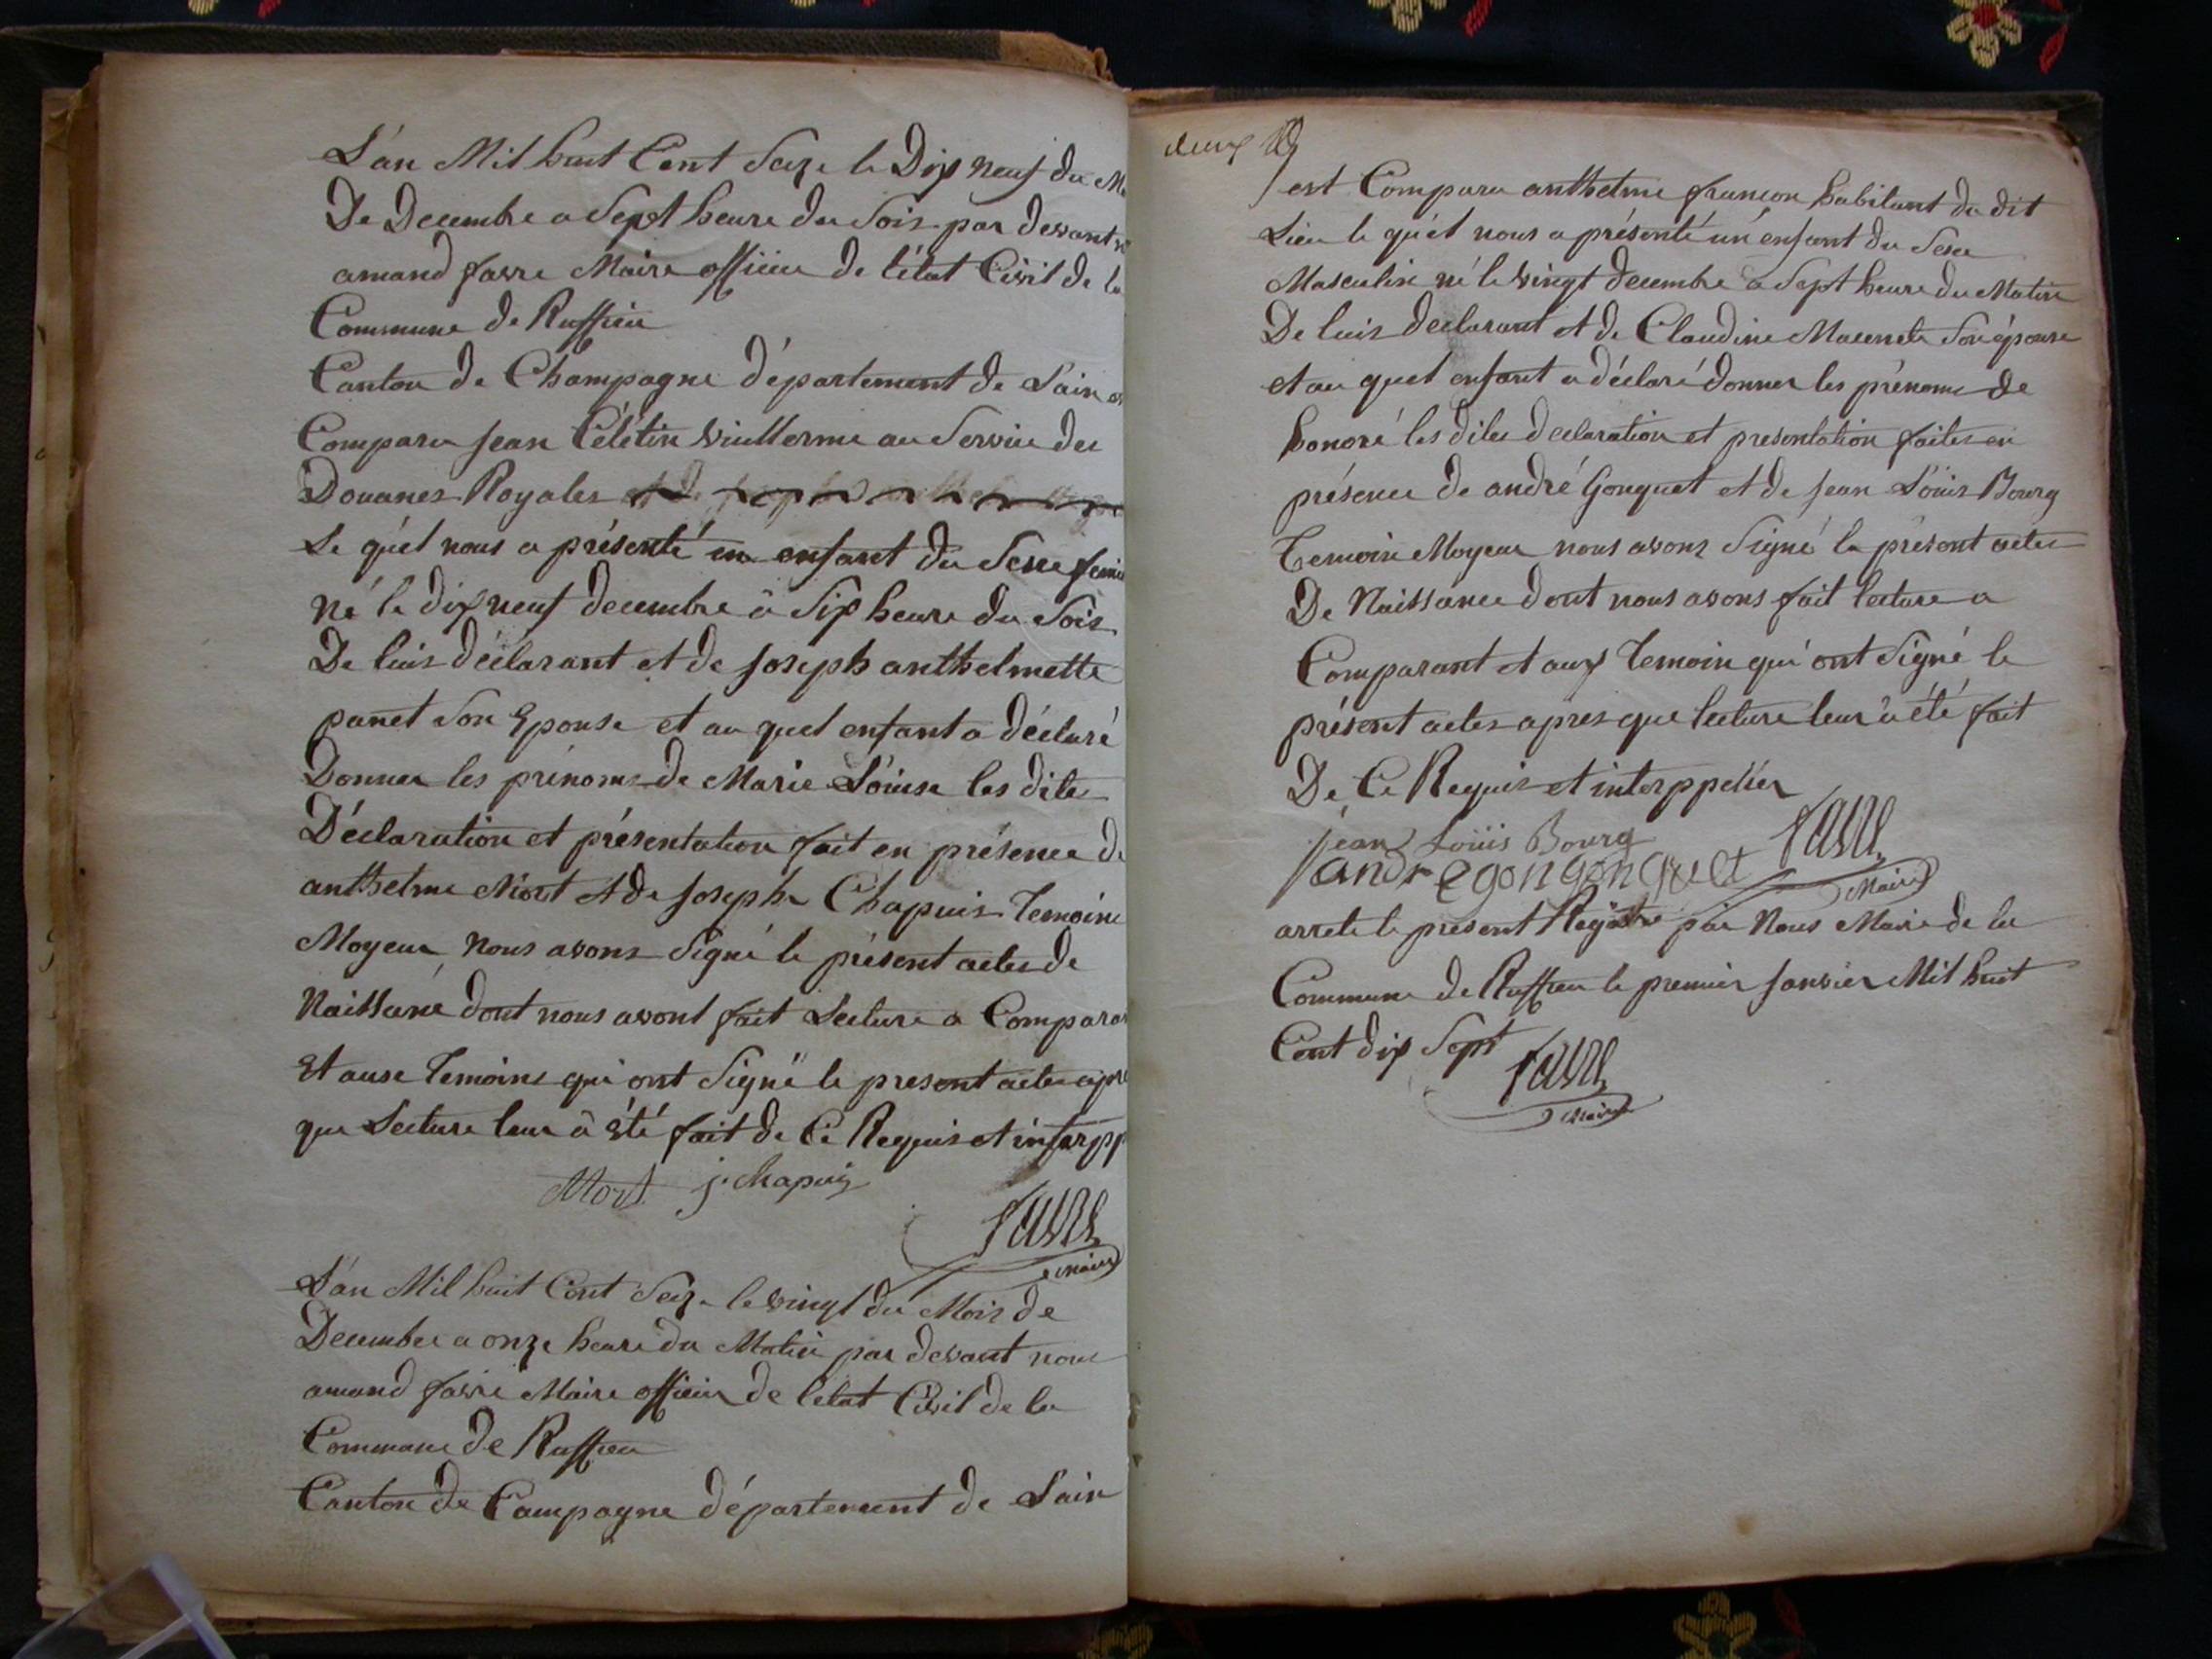 L'an Mil huit Cent Seize le Dix neuf du
De Decembre a Sept heure du Soir par devant
amand favre Maire officier de l'état Civil de la
Commune de Ruffieu
Canton de Champagne département de L'ain
Comparu Jean Célétin Vuillerme au Service des
Douanes Royales
Le quél nous a présenté un enfant du Sexe femi
né le dix neuf decembre à Six heure du Soir
De luis déclarant et de Joseph anthelmette
panet Son Epouse et au quel enfant a déclaré
Donner les prénoms de Marie Loüise les dites
Déclaration et présentation fait en présence de
anthelme Mort et de Joseph Chapuis Temoins
Moyeur Nous avons Signé le présent actes de
Naissance dont nous avont fait Lecture a Comparan
Et aux Temoins qui ont Signé le present actes apre
que Lecture leur à été fait de Ce Requis et interpp
Mort j. chapuis
favre
Maire
L'an Mil huit Cent Seize le vingt du Mois de
Decembre a onze heure du Matin par devant nous
amand favre Maire officier de l'etat Civil de la
Commune de Ruffieu
Canton de Campagne département de L'ain
est Comparu anthelme françon habitant du dit
Lieu le quél nous a présenté un enfant du Sexe
Masculin né le vingt decembre à Sept heure du Matin
De luis declarant et de Claudine Son épouse
et au quel enfant a déclaré donner les prénoms de
honoré les dites declaration et presentation faites en
présence de andré Gonguet et de Jean Loüis Bourg
Temoin Moyeur nous avons Signé le présent actes
De Naissance dont nous avons fait lecture a
Comparant et aux Temoin qui ont Signé le
présent actes apres que lecture leur à été fait
De Ce Requis et interppeller
jean Loüis Bourg
andregongonguet
favre
Maire
arrete le present Registre par Nous Maire de la
Commune de Ruffieu le premier Janvier Mil huit
Cent dix Sept
favre
Maire